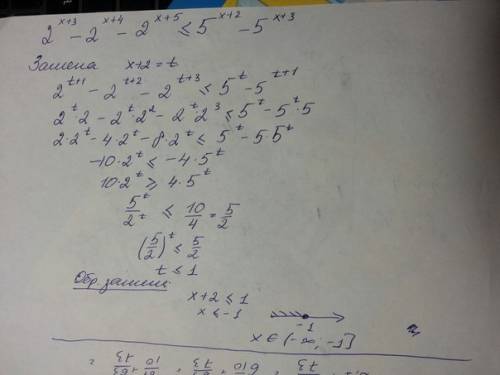 2^{x+3} - 2^{x+4} - 2^{x+5} ≤ 5^{x+2} - 5^{x+3}
Замена x+2=t
2^{t+1} - 2^{t+2} - 2^{t+3} ≤ 5^t - 5^{t+1}
2^t·2 - 2^t·2^2 - 2^t·2^3 ≤ 5^t - 5^t·5
2·2^t - 4·2^t - 8·2^t ≤ 5^t - 5·5^t
-10·2^t ≤ -4·5^t
10·2^t ≥ 4·5^t
5^t/2^t ≤ 10/4 = 5/2
(5/2)^t ≤ 5/2
t ≤ 1
Обр замена
x+2 ≤ 1
x ≤ -1
-1
x ∈ (-∞, -1]